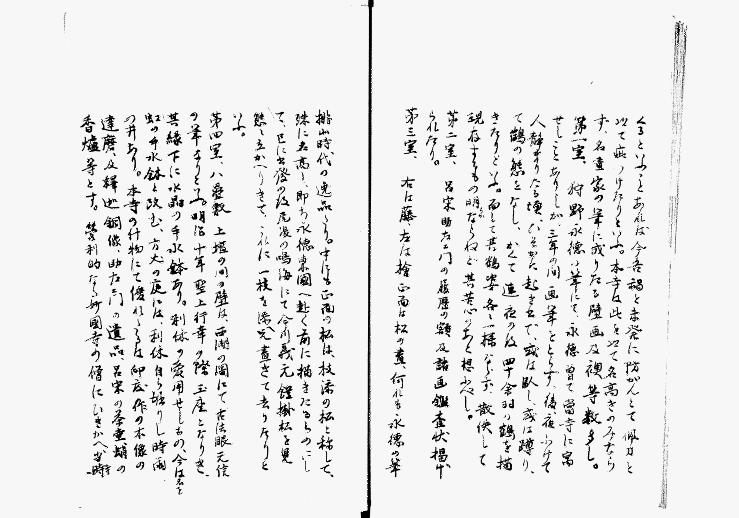 くるといふことあれば今吾禍を未発に防がんとて佩刀と
以て疵つけたりといふ。本寺は此を以て名高きのみなら
ず、名画家の筆に成りたる壁画及襖等数多し。
第一室、狩野永徳の筆にて、永徳曽て当寺に寓
せしことありしが三年の間画筆をとらず、後夜ふけて
人静まりたる頃ひそかに起き出で、或は臥し或は蹲り、
て鶴の態をなし、かくて連夜の後四十余羽の鶴を描
きたりといふ。而して其鶴の姿各一様ならず、散佚して
現存するもの明ならねど其苦心のあと想ふべし。
第二室、呂宋助左エ門の履歴の額及諸画鑑査状掲げ
られたり。
第三室、右は藤、左は檜、正面は松の画、何れも永徳の筆
桃山時代の逸品たり。中にも正面の松は、枝添の松と称して、
殊に名高し、即ち永徳東国へ赴く前に描きたるものにし
て、已に出発の後尾張の鳴海にて今川義元鎧掛松を見
態々立かへりきて、これに一枝を添え画きて去りたりと
いふ。
第四室、八畳敷 上壇の間の壁は、西湖の図にて古法眼元信
の筆なりといふ。明治十年 聖上行幸の際 玉座となりき、
其縁下に水晶の手水鉢あり。利休の愛用せしもの、今は名を
虹の手水鉢と改む、方丈の庭には、利休自ら掘りし時雨
の井あり。本寺の什物にて優れたるは印度作の木像の
達磨及釋迦銅像、助左エ門の遺品呂宋の茶壺蛸の
香爐等とす。営利的なる妙国寺の僧にひきかへ当時